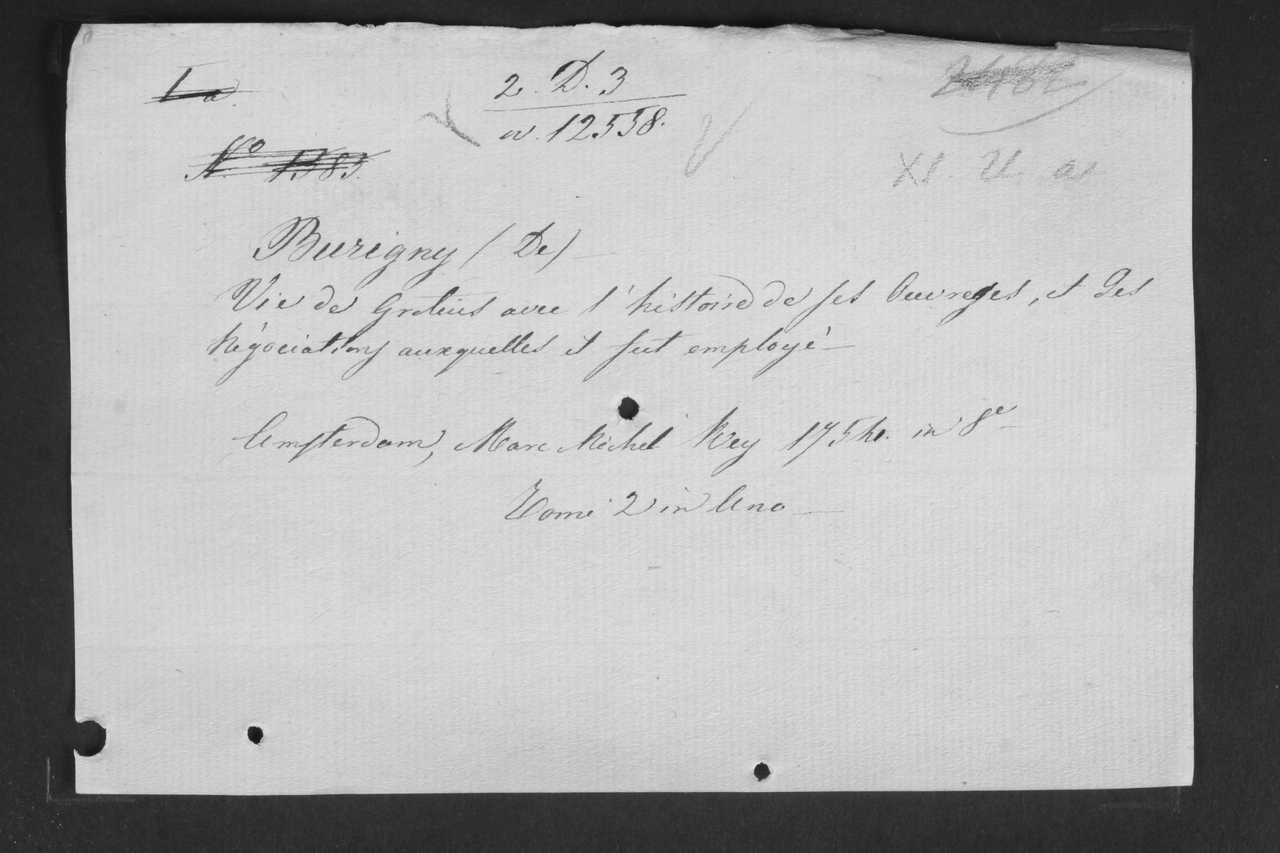 I a.
2. D. 3
a. 12558.
N.º 1383.
XI. U. a
Burigny (De)
Vie de Grotius avec l'histoire de ses Ouvrages, et des
Négociations auxquelles il fut employé
Amsterdam, Marc Michel Rey 1754. in 8º
Tome 2 in Uno